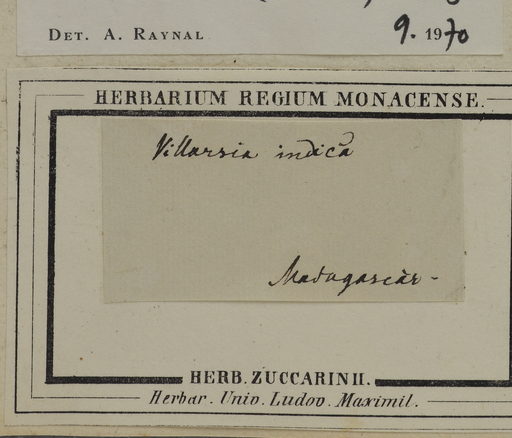 DET. A. RAYNAL 9. 1970
HERBARIUM REGIUM MONACENSE.
Villarsia indica
Madagascar -
HERB. ZUCCARINII.
Herbar. Univ. Ludov. Maximil.